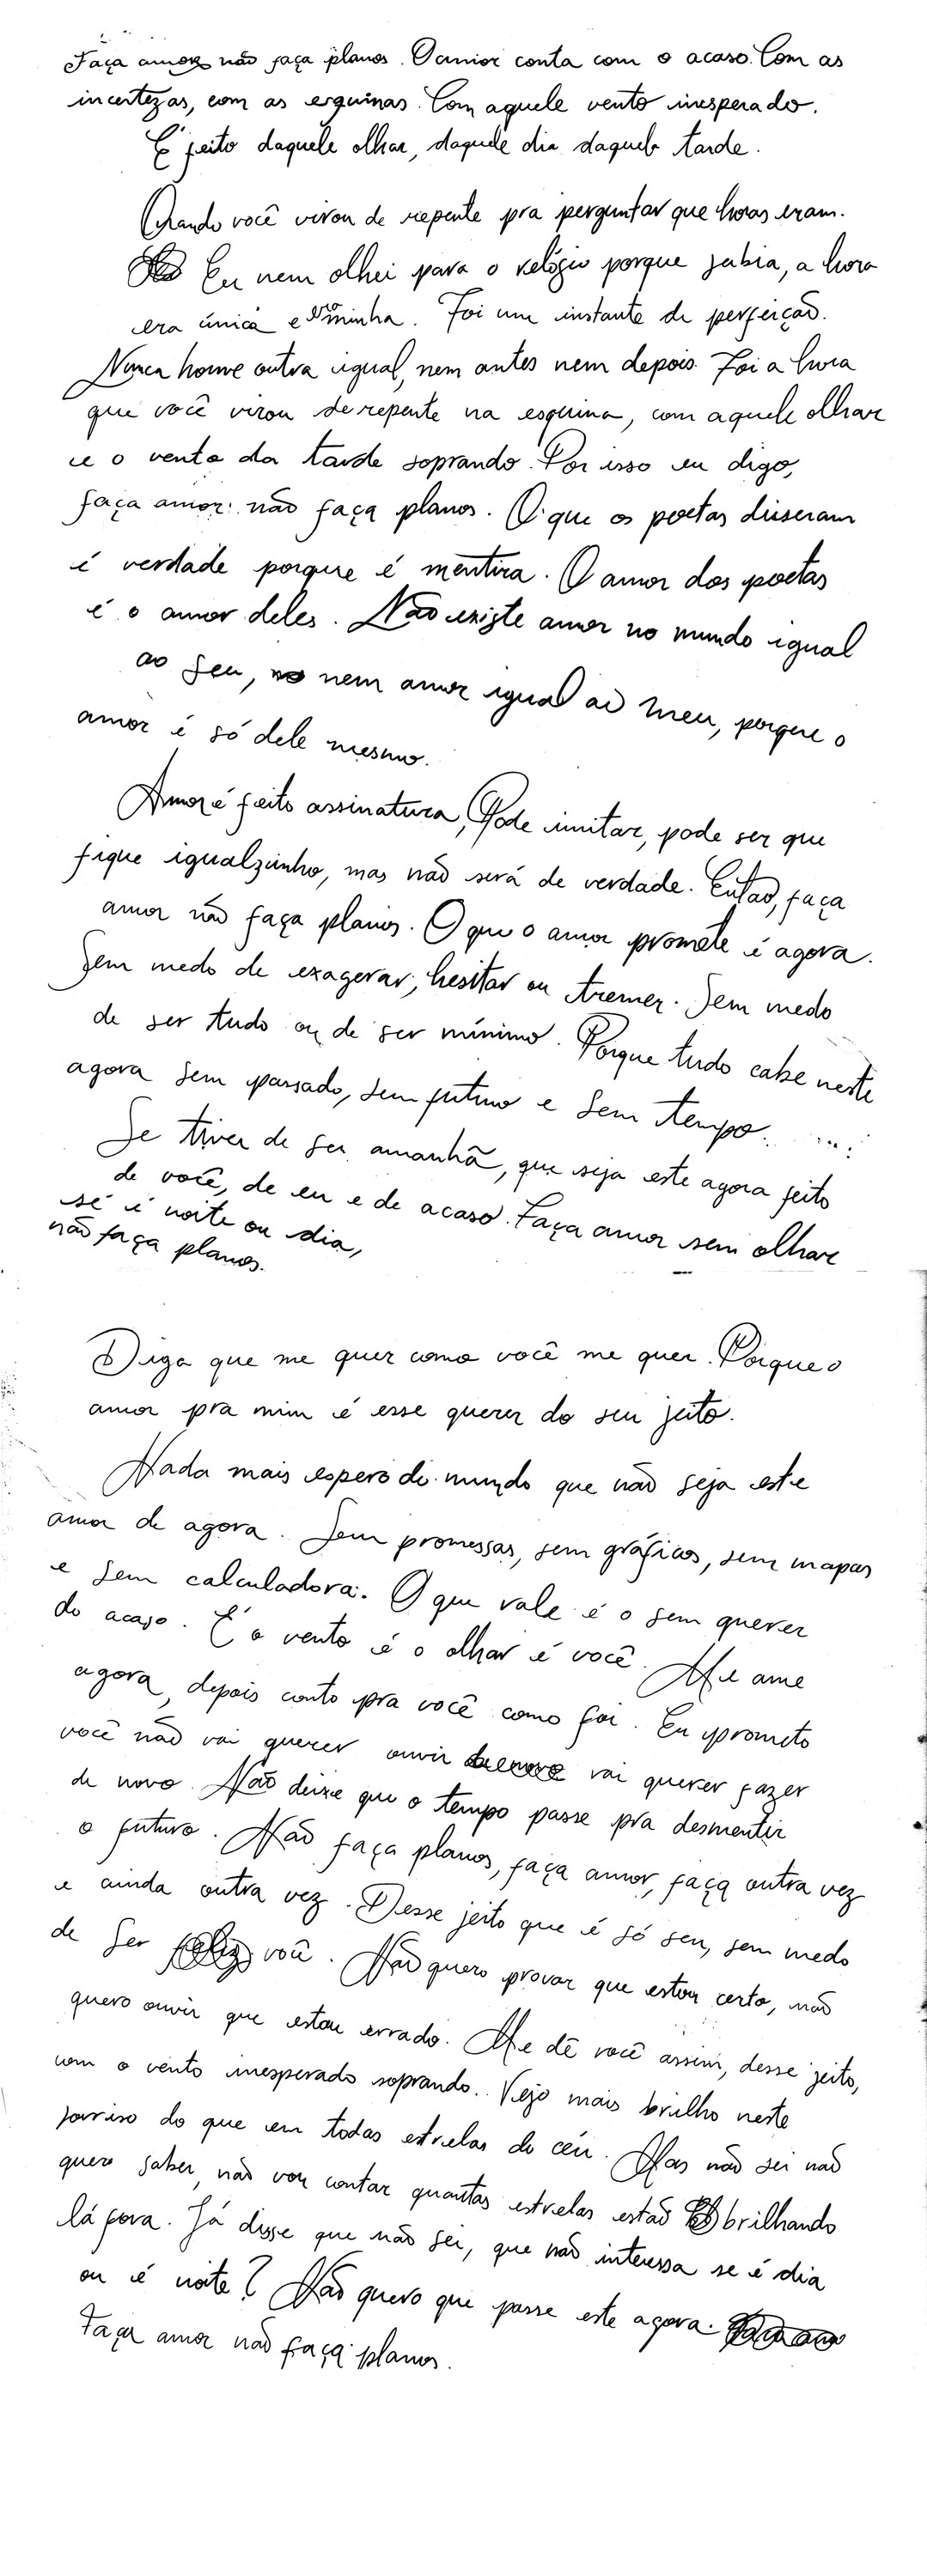 Faça amor não faça planos. O amor conta com o acaso. Com as
incertezas, com as esquinas. Com aquele vento inesperado.
É feito daquele olhar, daquele dia daquela tarde.
Quando você virou de repente pra perguntar que horas eram.
Eu nem olhei para o relógio porque sabia, a hora
era única e era minha. Foi um instante de perfeição.
Nunca houve outra igual, nem antes nem depois. Foi a hora
que você virou de repente na esquina, com aquele olhar
e o vento da tarde soprando. Por isso eu digo,
faça amor não faça planos. O que os poetas disseram
é verdade porque é mentira. O amor dos poetas
é o amor deles. Não existe amor no mundo igual
ao seu, nem amor igual ao meu, porque o
amor é só dele mesmo.
Amor é feito assinatura, Pode imitar, pode ser que
fique igualzinho, mas não será de verdade. Então, faça
amor não faça planos. O que o amor promete é agora.
Sem medo de exagerar, hesitar ou tremer. Sem medo
de ser tudo ou de ser mínimo. Porque tudo cabe neste
agora sem passado, sem futuro e sem tempo.
Se tiver de ser amanhã, que seja este agora feito
de você, de eu e de acaso. Faça amor sem olhar
se é noite ou dia,
não faça planos.
Diga que me quer como você me quer. Porque o
amor pra mim é esse querer do seu jeito.
Nada mais espero do mundo que não seja este
amor de agora. Sem promessas, sem gráficos, sem mapas
e sem calculadora. O que vale é o sem querer
do acaso. É o vento é o olhar é você. Me ame
agora, depois conto pra você como foi. Eu prometo
você não vai querer ouvir vai querer fazer
de novo. Não deixe que o tempo passe pra desmentir
o futuro. Não faça planos, faça amor, faça outra vez
e ainda outra vez. Desse jeito que é só seu, sem medo
de ser você. Não quero provar que estou certo, não
quero ouvir que estou errado. Me dê você assim, desse jeito,
com o vento inesperado soprando. Vejo mais brilho neste
sorriso do que em todas estrelas do céu. Mas não sei não
quero saber, não vou contar quantas estrelas estão brilhando
lá fora. Já disse que não sei, que não interessa se é dia
ou é noite? Não quero que passe este agora.
Faça amor não faça planos.